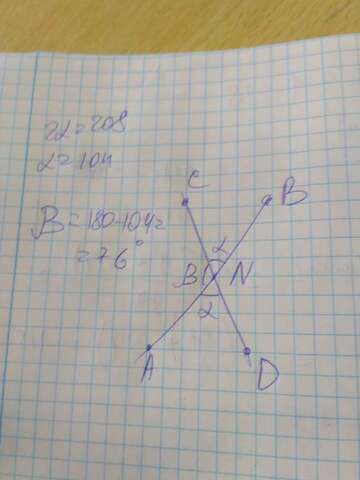 2α=208
α=104
β=180-104=
=76°
C
B
α
β N
α
A
D